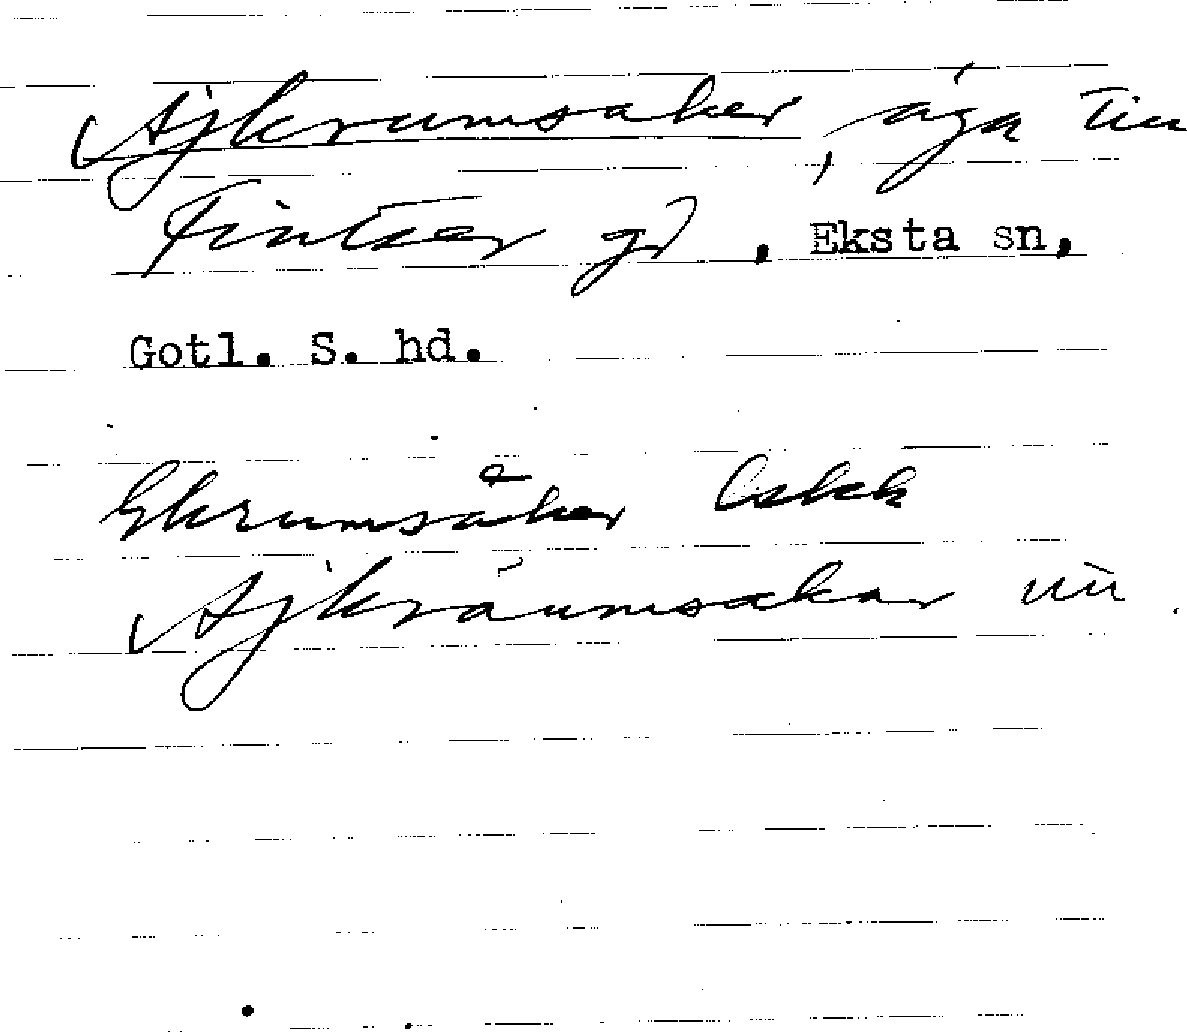 Ajkrumsaker, äga till
Fintser gd, Eksta sn,
Gotl. S. hd.
Ekrumsåker Eskk
Ajkråumsakar uu